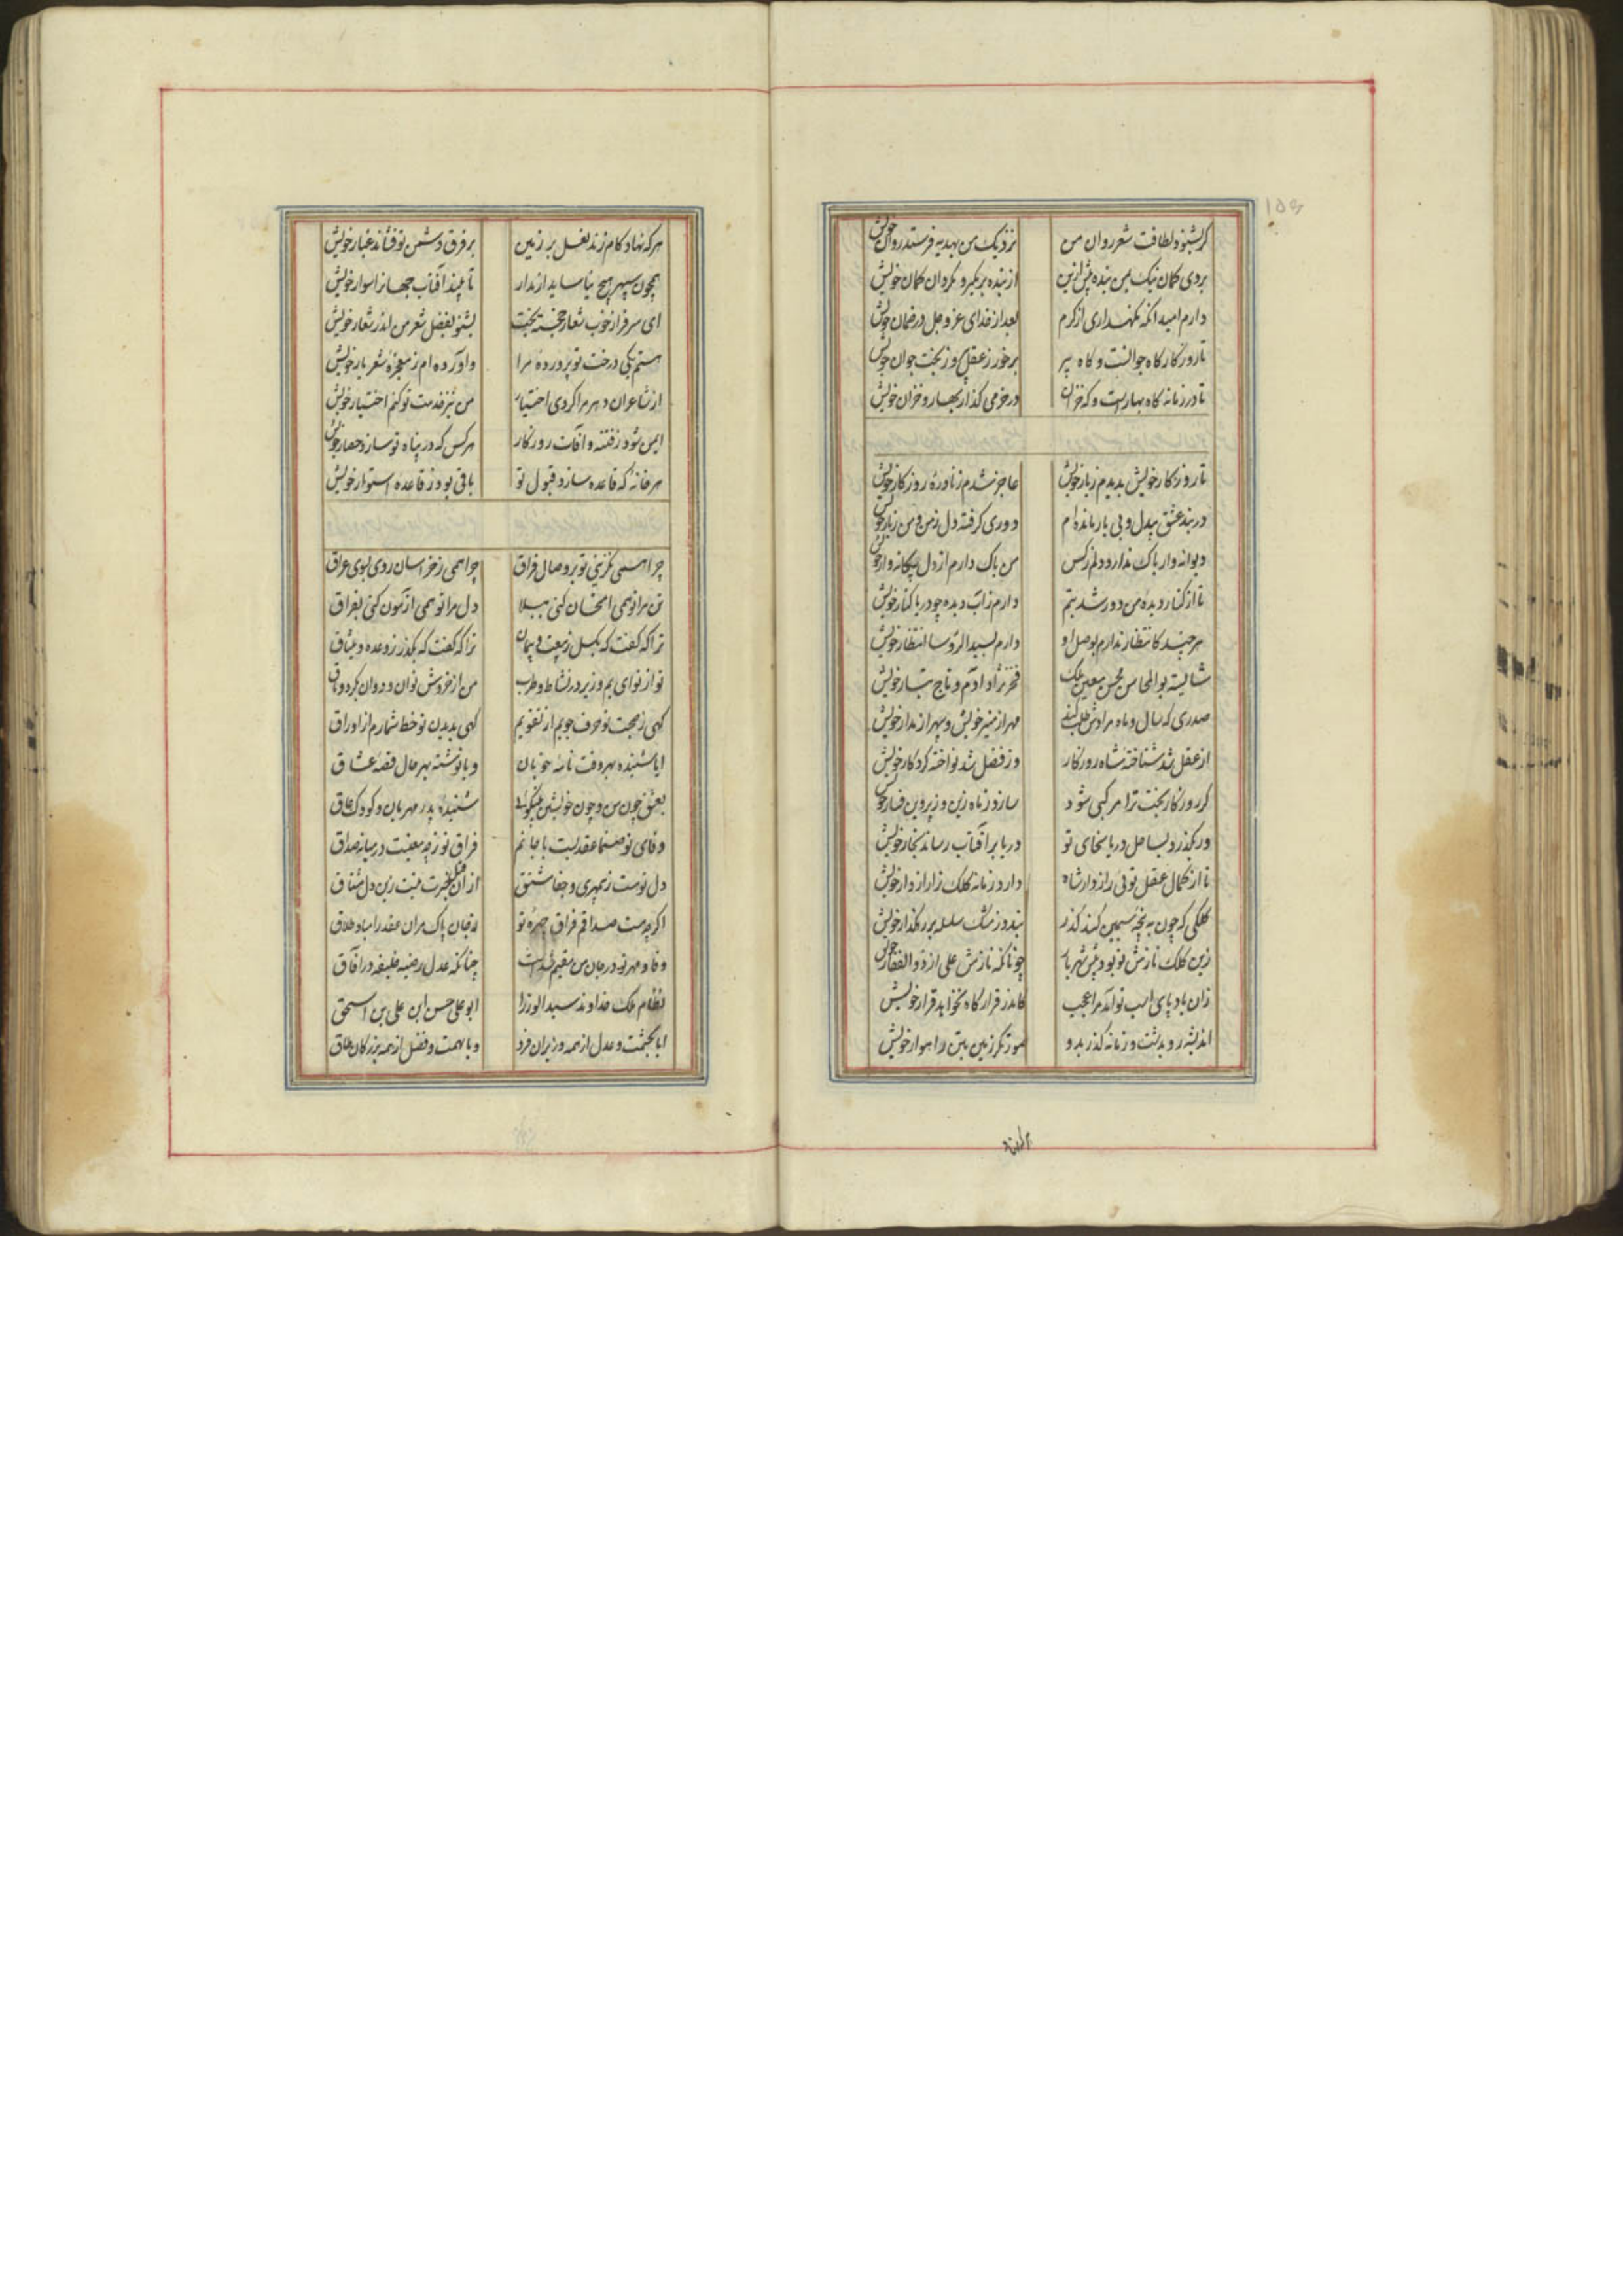 ۱۵۶
گر بشنود لطافت شعر روان من نزدیک من بهدیه فرستد روان خویش
بردی گمان نیک بمن بنده پیش ازین از بنده بر مگیر و مگردان گمان خویش
دارم امید آنکه نگهداری از کرم بعد از خدای عز و جل در ضمان خویش
تا روزگار گاه جوانست و گاه پیر برخور ز عقل و ز بخت جوان خویش
تا در زمانه گاه بهارست و گه خزان در خرمی گذار بهار و خزان خویش
تا روزگار خویش بدیدم ز یار خویش عاجز شدم ز نادرهٔ روزگار خویش
در بند عشق بیدل و بی یار مانده ام دوری گرفته دل ز من و من ز یار خویش
دیوانه وار باک ندارد دلم ز کس من باک دارم از دل
تا از کنار دیده من دور شد بتم دارم ز آب دیده چو دریا کنار خویش
هر چند کانتظار ندارم بوصل او دارم بسید الرؤسا انتظار خویش
شایسته بوالمحاسن محسن معین ملک فخر نژاد آدم و تاج تبار خویش
صدری که سال و ماه مهر از منیر خویش و سپهر از مدار خویش
از عقل شد شناخته شاه روزگار وز فضل شد نواخته کردگار خویش
گر روزگار بخت ترا مرکبی شود سازد ز ماه زین و ز پروین فسار خویش
ور بگذرد بساحل دریا سخای تو دریا بر آفتاب رساند بخار خویش
تا از کمال عقل توئی رازدار شاه دارد زمانه کلک ترا رازدار خویش
کلکی که چون به تختهٔ سیمین کند گذر بندد ز مشک سلسله بر رهگذار خویش
زین کلک نازش تو بود پیش شهریار چونانکه نازش علی از ذوالفقار خویش
زان باد پای اسب تو آمد مرا عجب کاندر قرارگاه نخواهد قرار خویش
اندیشه رو بدشت و زمانه گذر بدو راهوار خویش
هر که نهاد گام زند نعل بر زمین بر فرق دشمن تو فشاند غبار خویش
همچون سپهر هیچ نیاساید از مدار تا بیند آفتاب جهانرا سوار خویش
ای سرفراز خوب شعار خجسته بخت بشنو بفضل شعر من اندر شعار خویش
هستم یکی درخت تو پرورده مرا وآورده ام ز معجزهٔ شعر بار خویش
از شاعران دهر مرا کردی اختیار من نیز خدمت تو کنم اختیار خویش
ایمن شود ز فتنه و آفات روزگار هر کس که در پناه تو سازد حصار خویش
هر خانهٔ که قاعده سازد قبول تو باقی بود ز قاعده استوار خویش
چرا همی نگزینی تو بر وصال فراق چرا همی ز خراسان روی بسوی عراق
تن مرا تو همی امتحان کنی ببلا دل مرا تو همی آزمون کنی بفراق
ترا که گفت که بگسل ز بیعت و پیمان ترا که گفت که بگذر ز وعده و میثاق
تو از نوای بم و زیر در نشاط و طرب من از خروش نوان و دوان
گهی ز هجر تو حرف جویم از تقویم گهی بدیدن تو خط شمارم از اوراق
ایا شنیده بهر وقت نامهٔ خوبان و یا نوشته بهر حال قصهٔ عشاق
بعشق چون من و چون خویشتن شنیده پدر مهربان و کودک عاق
وفای تو صنما عقد بست با جانم فراق تو ز چه معنیست در میانه صداق
دل تو هست ز بیمهری و جفا مشتق دل مشتاق
اگر چه هست صداقم فراق چهرهٔ تو ز جان پاک مران عقد را مباد طلاق
وفا و مهر تو در جان من مقیم شدست چنانکه عدل رضیه خلیفه در آفاق
نظام ملک خداوند سید الوزرا ابو علی حسن ابن علی بن اسحق
ایا بحشمت و عدل از همه وزیران فرد و یا بهمت و فضل از همه بزرگان طاق
هر که نهاد